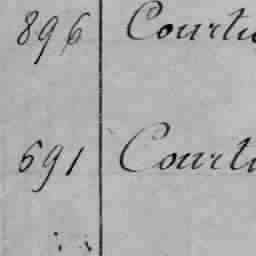 896 Courti
691 Courti